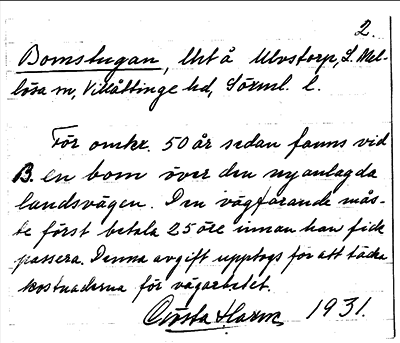 2.
Bomstugan, Utå Ulvstorp, L. Mel-
lösa sn, Villåttinge hd, Sörml. l.
För omkr. 50 år sedan fanns vid
B. en bom över den nyanlagda
landsvägen. Den vägfarande mås-
te först betala 25 öre innan han fick
passera. Denna avgift upptogs för att täcka
kostnaderna för vägarbetet.
Gösta Harm 1931.